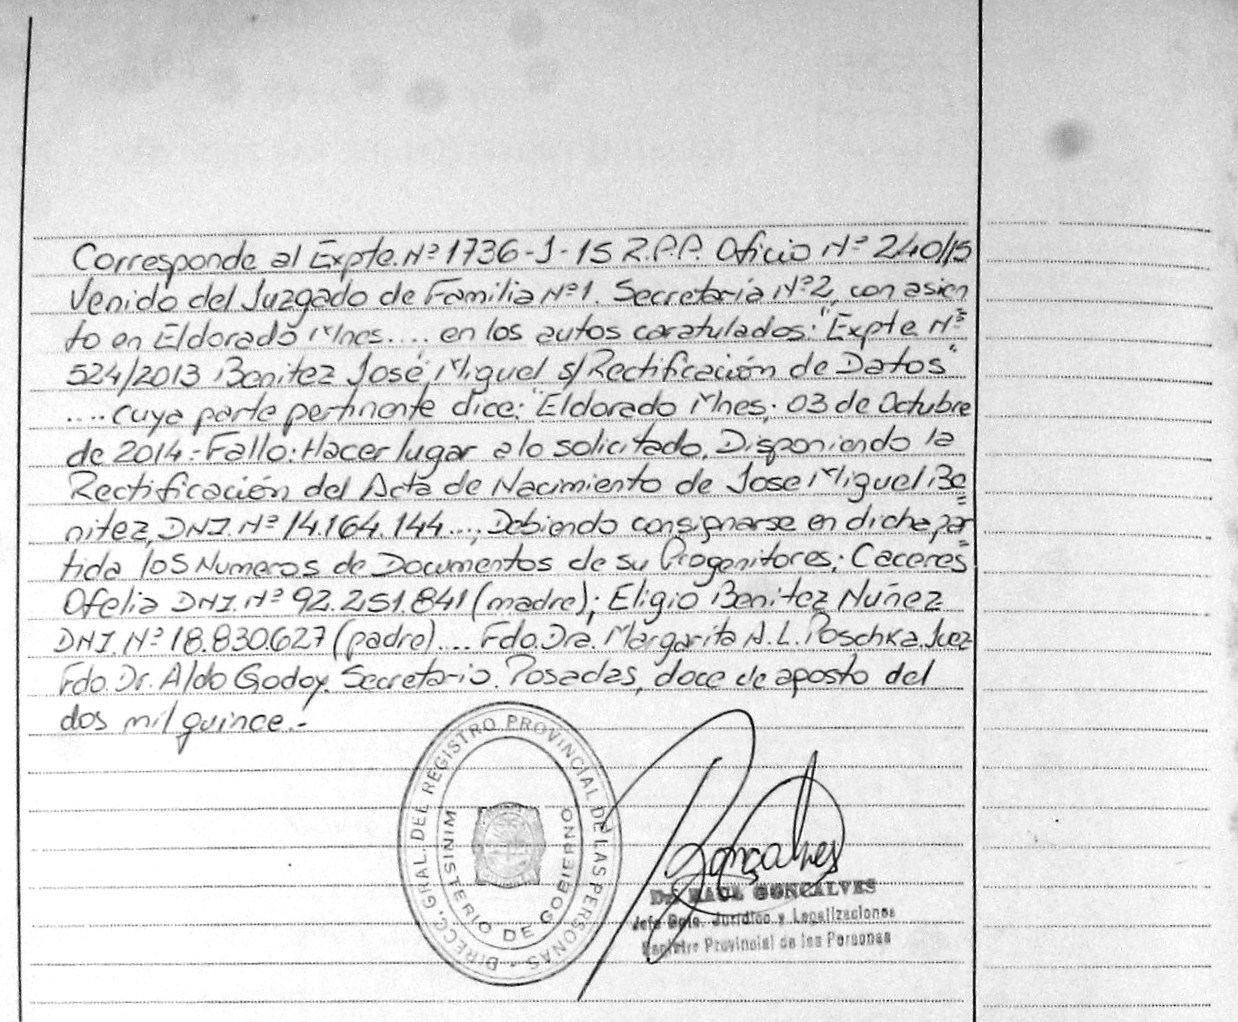 Corresponde al Expte. Nº 1736-J-15 R.P.P. Oficio Nº 240/15
Venido del Juzgado de Familia Nº1. Secretaría Nº2, con asien
to en Eldorado Mnes.... en los autos caratulados: "Expte Nº
524/2013 Benitez José Miguel s/Rectificación de Datos"
.... cuya parte pertinente dice: "Eldorado Mnes; 03 de Octubre
de 2014.- Fallo: Hacer lugar a lo solicitado, Disponiendo la
Rectificación del Acta de Nacimiento de Jose Miguel Be
nitez, DNI. Nº 14.164.144..., Debiendo consignarse en dicha par
tida los Numeros de Documentos de su Progenitores; Caceres
Ofelia DNI. Nº 92.251.841 (madre); Eligio Benitez Nuñez
DNI. Nº 18.830.627 (padre).... Fdo. Dra. Margarita A. L. Poschka. Juez
Fdo. Dr. Aldo Godoy. Secretario. Posadas, doce de agosto del
dos mil quince.-
DIRECC. GRAL. DEL REGISTRO PROVINCIAL DE LAS PERSONAS
MINISTERIO DE GOBIERNO
Gonçalves
Dr. RAUL GONCALVES
Jefe Dpto. Jurídico y Legalizaciones
Registro Provincial de las Personas